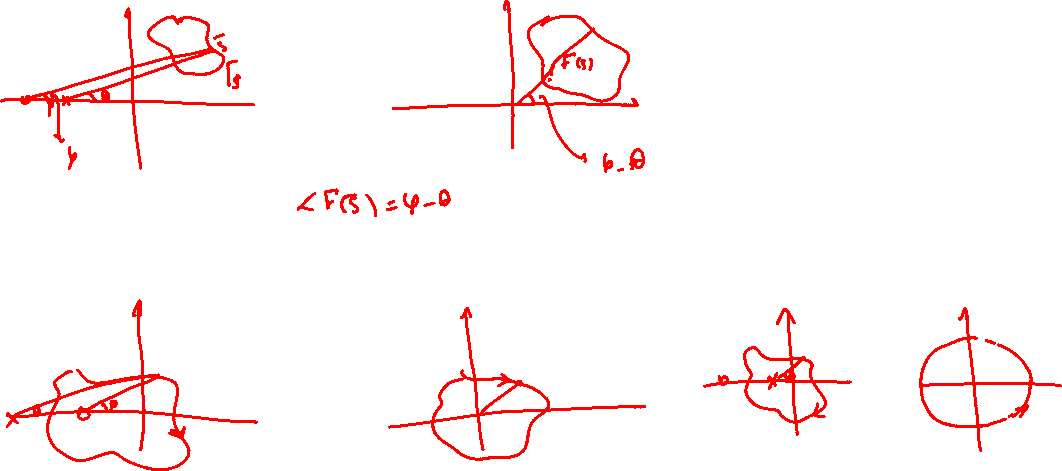 s̄
Γs
θ
φ
F(s)
φ-θ
∠F(s) = φ-θ
θ
φ
θ